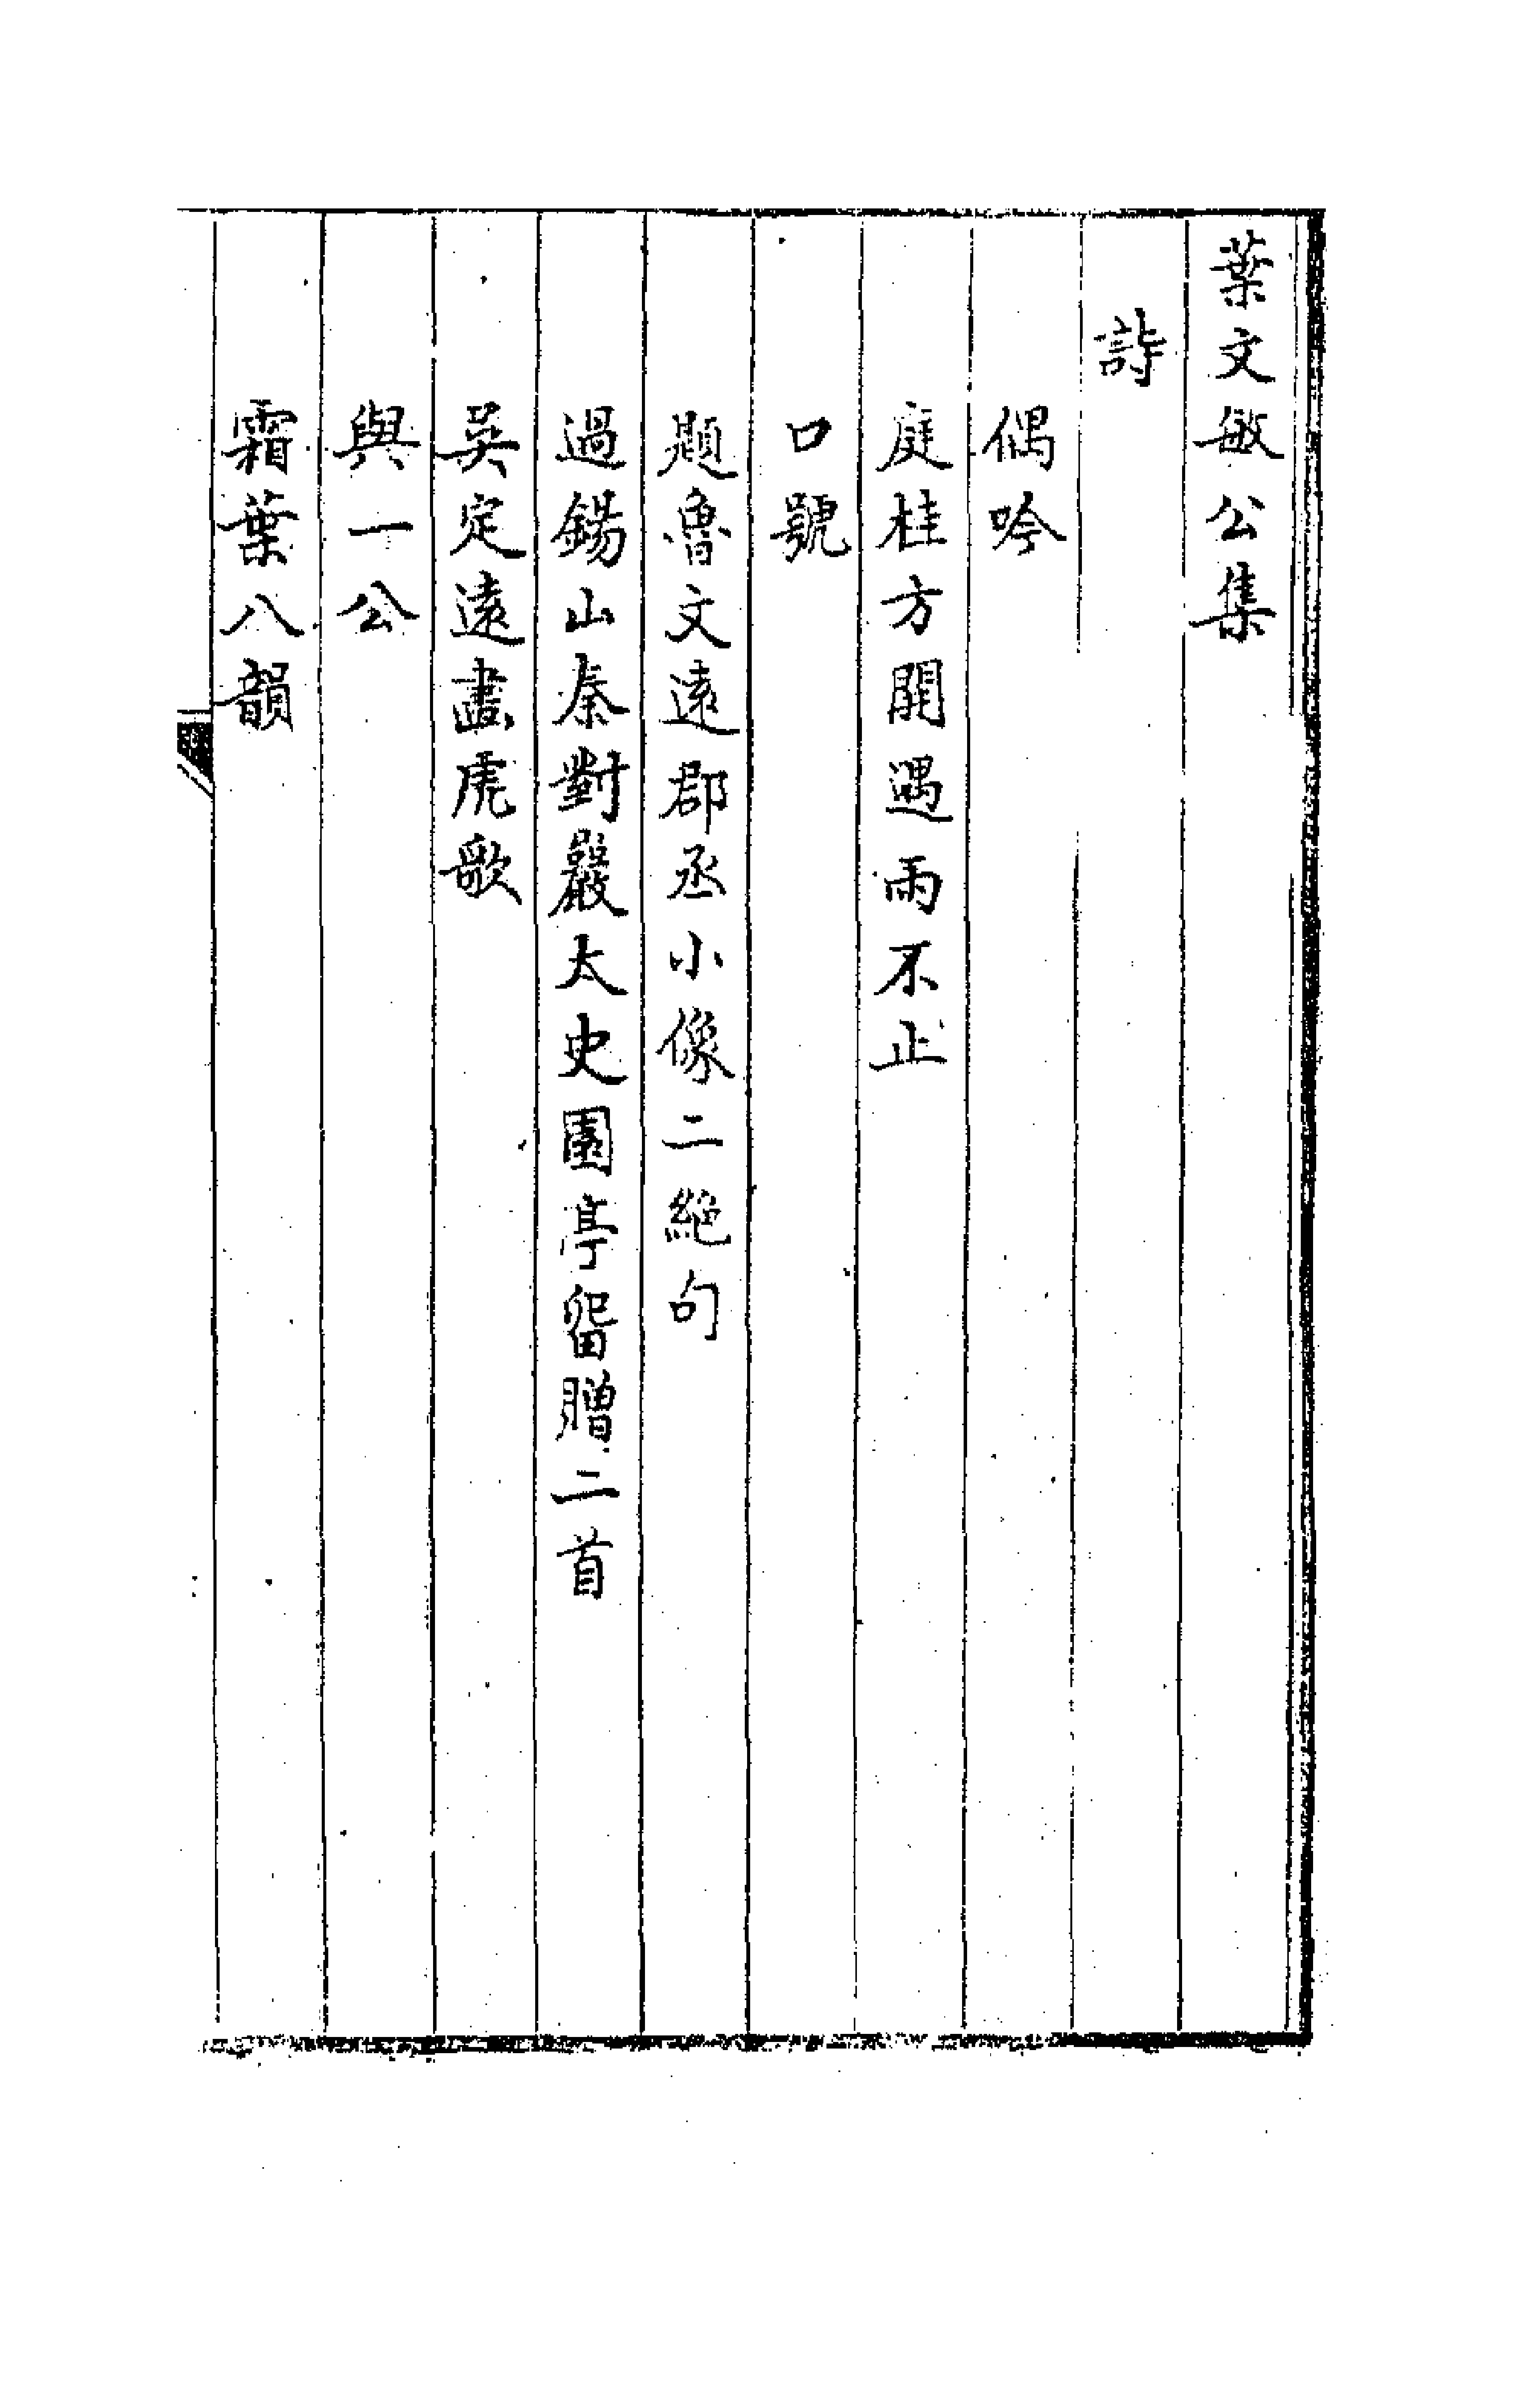 葉文敏公集
詩
偶吟
庭桂方開遇雨不止
口號
題魯文遠郡丞小像二絕句
過錫山秦對巖太史園亭留贈二首
吳定遠畫虎歌
與一公
霜葉八韻